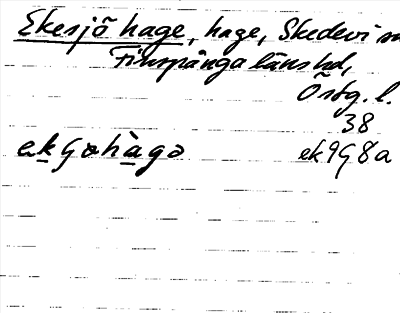 Ekesjö hage, hage, Skedevi sn
Finspånga läns hd,
Östg. l.
38
ekçəhàgə ek9G8a